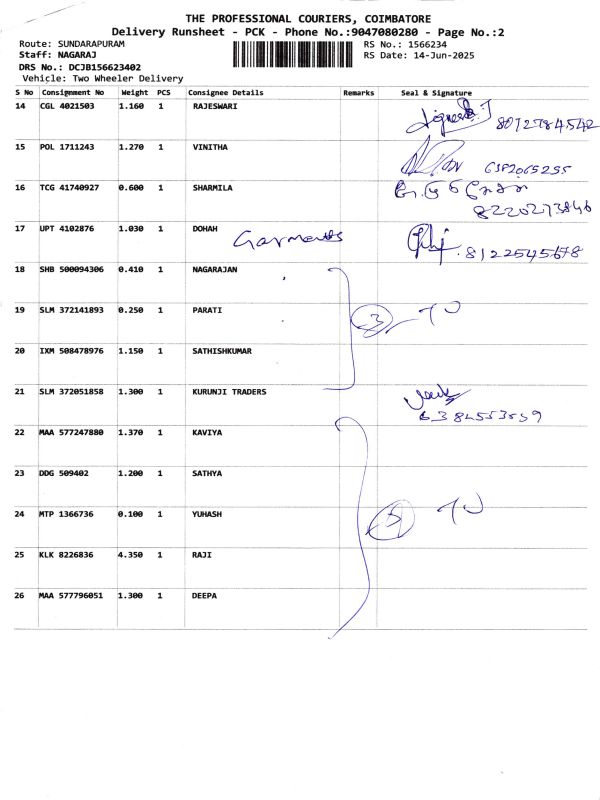 THE PROFESSIONAL COURIERS, COIMBATORE
Delivery Runsheet - PCK - Phone No.:9047080280 - Page No.:2
Route: SUNDARAPURAM RS No.: 1566234
Staff: NAGARAJ RS Date: 14-Jun-2025
DRS No.: DCJB156623402
Vehicle: Two Wheeler Delivery
S No Consignment No Weight PCS Consignee Details Remarks Seal & Signature
14 CGL 4021503 1.160 1 RAJESWARI
8072784542
15 POL 1711243 1.270 1 VINITHA
16 TCG 41740927 0.600 1 SHARMILA
8220273846
17 UPT 4102876 1.030 1 DOHAH Garments 8122545678
18 SHB 500094306 0.410 1 NAGARAJAN
19 SLM 372141893 0.250 1 PARATI 3
20 IXM 508478976 1.150 1 SATHISHKUMAR
21 SLM 372051858 1.300 1 KURUNJI TRADERS
6384553559
22 MAA 577247880 1.370 1 KAVIYA
23 DDG 509402 1.200 1 SATHYA
24 MTP 1366736 0.100 1 YUHASH 5
25 KLK 8226836 4.350 1 RAJI
26 MAA 577796051 1.300 1 DEEPA